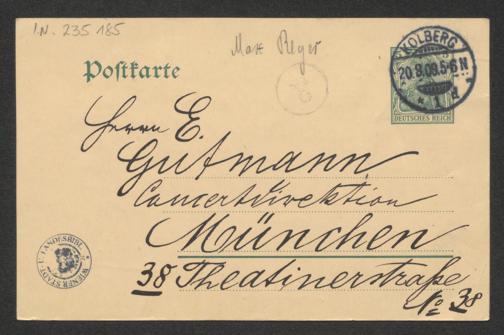 I.N. 235 185
Max Reger
Postkarte
KOLBERG
20.8.09.5-6N
* 1 d
DEUTSCHES REICH
Herrn E.
Gutmann
Concertdirektion
München
38 Theatinerstraße
No 38
WIENER STADT- U. LANDESBIBL.